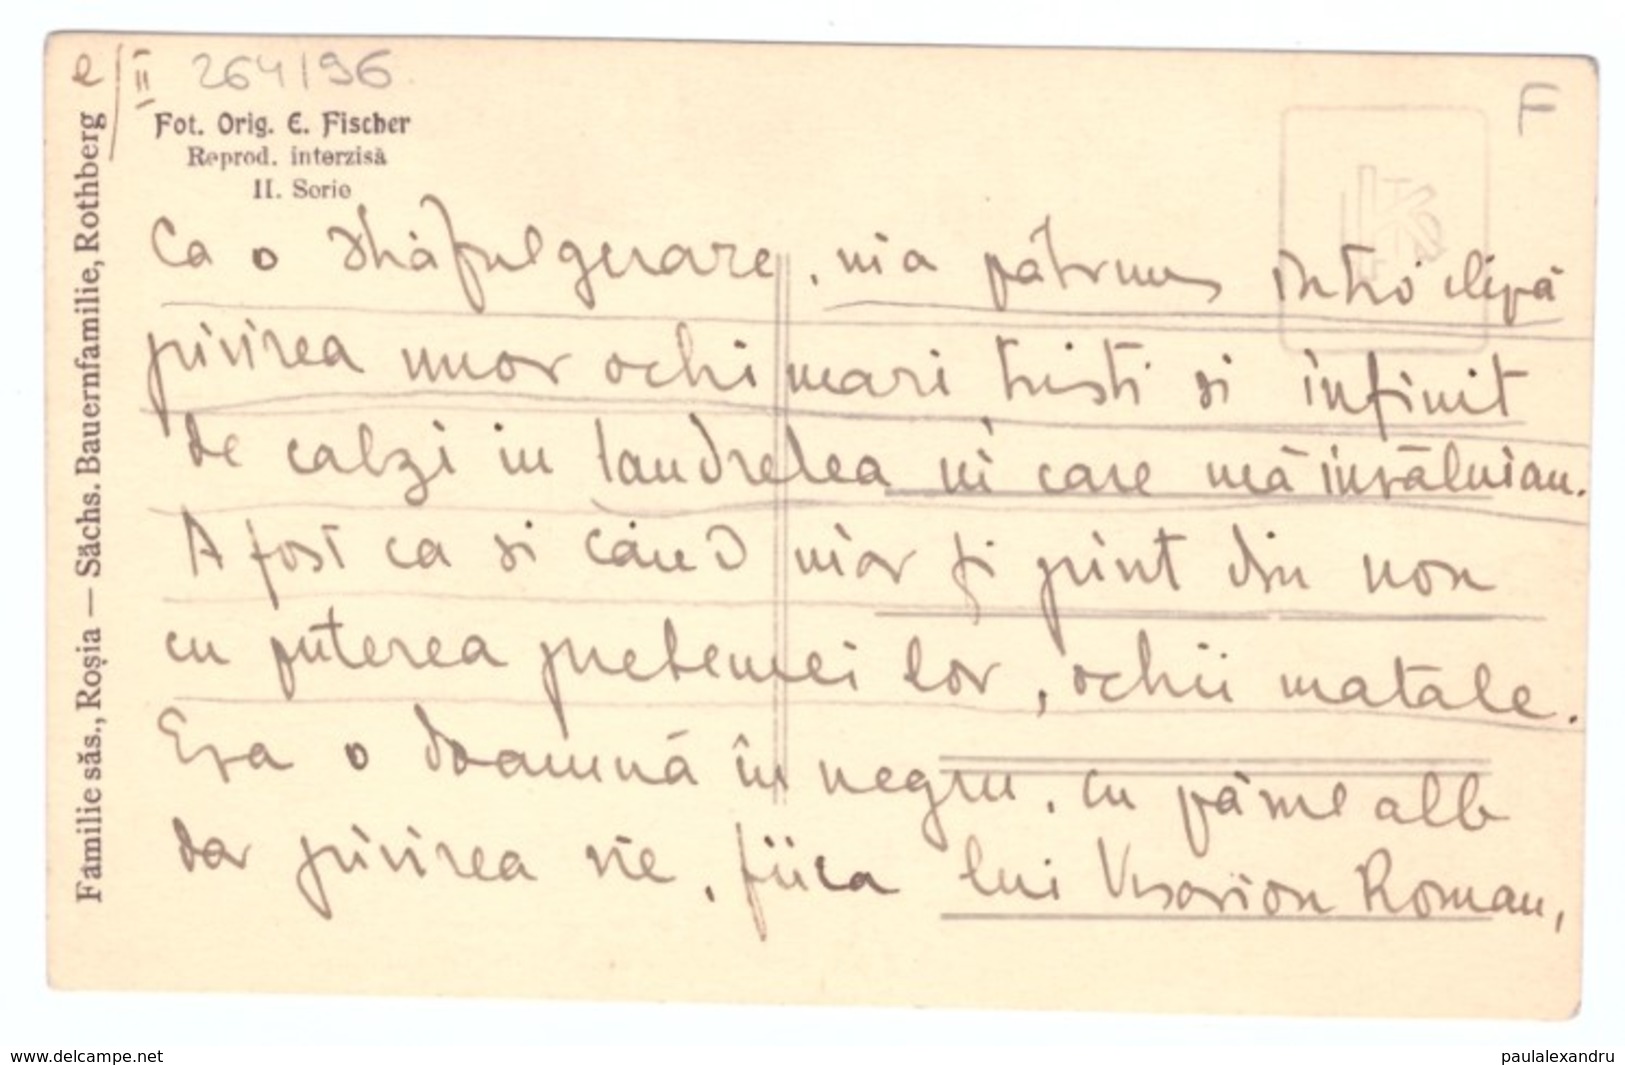 e/II 264/96
F
Fot. Orig. E. Fischer
Reprod. interzisă
II. Serie
Familie săs., Roșia — Sächs. Bauernfamilie, Rothberg
Ca o străfulgerare, m'a pătruns într'o clipă
privirea unor ochi mari, triști si infinit
de calzi in landreleea in care mă invăluiau.
A fost ca si când m'ar fi privit din nou
cu puterea prieteniei lor, ochii matale.
Era o doamnă în negru, cu părul alb
dar privirea vie, fiica lui Visarion Roman,
www.delcampe.net
paulalexandru